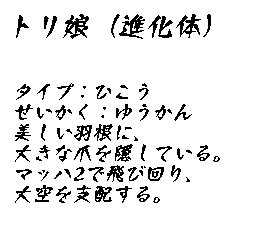 トリ娘（進化体）
タイプ：ひこう
せいかく：ゆうかん
美しい羽根に、
大きな爪を隠している。
マッハ2で飛び回り、
大空を支配する。